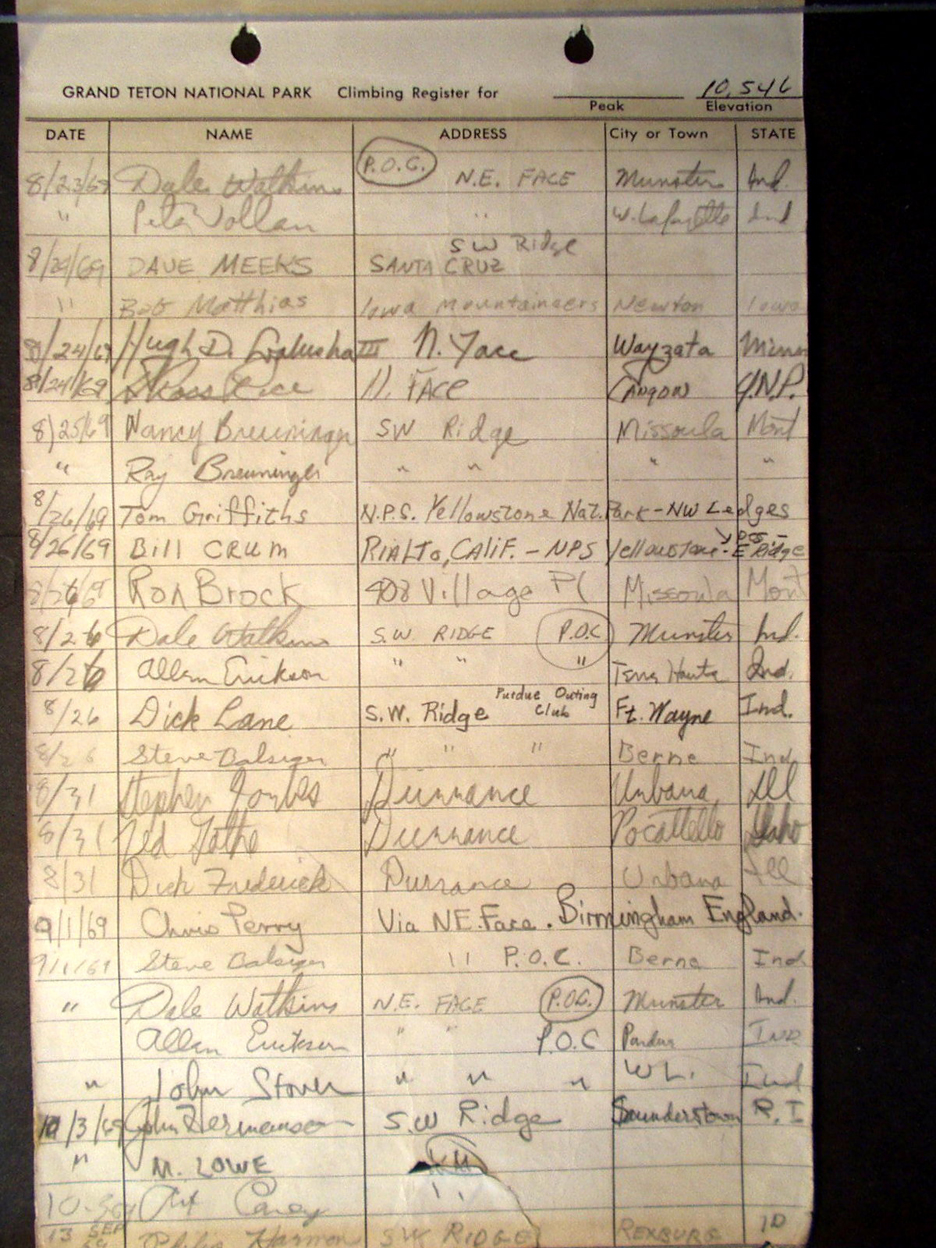 10,546
GRAND TETON NATIONAL PARK Climbing Register for
Peak Elevation
DATE NAME ADDRESS City or Town STATE
P.O.C.
8/23/69 Dale Watkins N.E. FACE Munster Ind.
" Pete Vollan " W. Lafayette Ind
SW Ridge
8/24/69 DAVE MEEKS SANTA CRUZ
" Bob Matthias Iowa Mountaineers Newton Iowa
8/24/69 Hugh D. Galusha III N. Face Wayzata Minn
8/24/69 Rice N. FACE Canyon Y.N.P.
8/25/69 Nancy Breuninger SW Ridge Missoula Mont
" Ray Breuninger " " " "
8/26/69 Tom Griffiths N.P.S. Yellowstone Nat. Park - NW Ledges
8/26/69 BILL CRUM RIALTO, CALIF. - NPS Yellowstone - E Ridge
8/26/69 Ron Brock 408 Village Pl Missoula Mont
8/26 Dale Watkins S.W. RIDGE P.O.C Munster Ind.
8/26 Allen Erickson " " " Terre Haute Ind.
8/26 Dick Lane S.W. Ridge Purdue Outing Club Ft. Wayne Ind.
8/26 Steve Balsiger " " " Berne Ind
8/31 Stephen Durrance Urbana, Ill
8/31 Ted Durrance Pocatello Idaho
8/31 Dick Frederick Durrance Urbana Ill
9/1/69 Chris Perry Via NE. Face. Birmingham England.
9/1/69 Steve Balsiger " P.O.C. Berne Ind
" Dale Watkins N.E. FACE P.O.C. Munster Ind.
Allen Erickson " " P.O.C Purdue IND
" John Stover " " " W L. Ind
/3/69 John Hermanson S.W Ridge Saunderstown R.I
" M. LOWE
Art Carey "
13 SEP 69 Philip Harmon SW RIDGE REXBURG ID